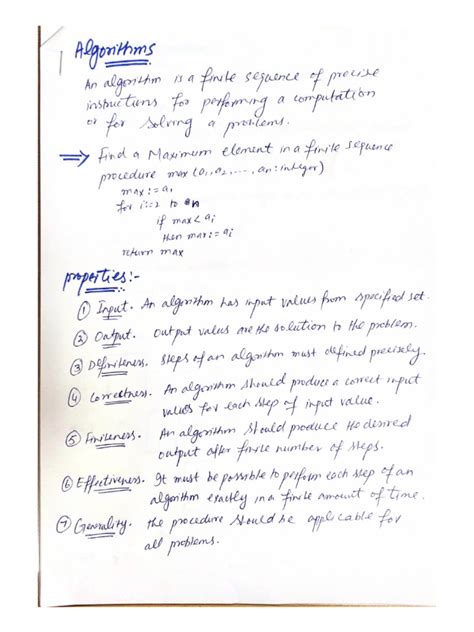 Algorithms
An algorithm is a finite sequence of precise
instructions for performing a computation
or for solving a problems.
⇒ Find a Maximum element in a finite sequence
procedure max (a₁, a₂, ...., an: integer)
max := a₁
for i:=2 to n
if max < aᵢ
then max := aᵢ
return max
properties:-
① Input. An algorithm has input values from specified set.
② Output. Output values are the solution to the problem.
③ Definiteness. Steps of an algorithm must defined precisely.
④ Correctness. An algorithm should produce a correct input
values for each step of input value.
⑤ Finiteness. An algorithm should produce the desired
output after finite number of steps.
⑥ Effectiveness. It must be possible to perform each step of an
algorithm exactly in a finite amount of time.
⑦ Genrality. The procedure should be applicable for
all problems.